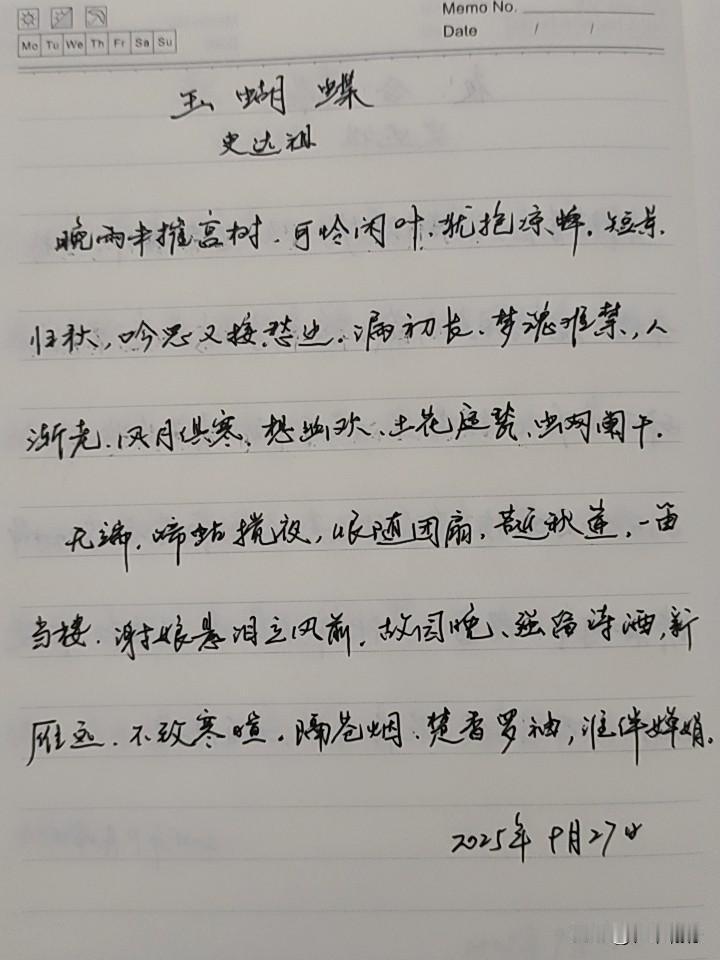 Memo No.
Mo Tu We Th Fr Sa Su
Date / /
玉蝴蝶
史达祖
晚雨未摧宫树.可怜闲叶.犹抱凉蝉.短景.
归秋,吟思又接愁边.漏初长.梦魂难禁,人
渐老.风月俱寒.想幽欢、土花庭甃、虫网阑干.
无端.啼蛄搅夜,恨随团扇,苦近秋莲,一笛
当楼.谢娘悬泪立风前.故园晚、强留诗酒,新
雁远.不致寒暄.隔苍烟.楚香罗袖,谁伴婵娟.
2025年9月27日